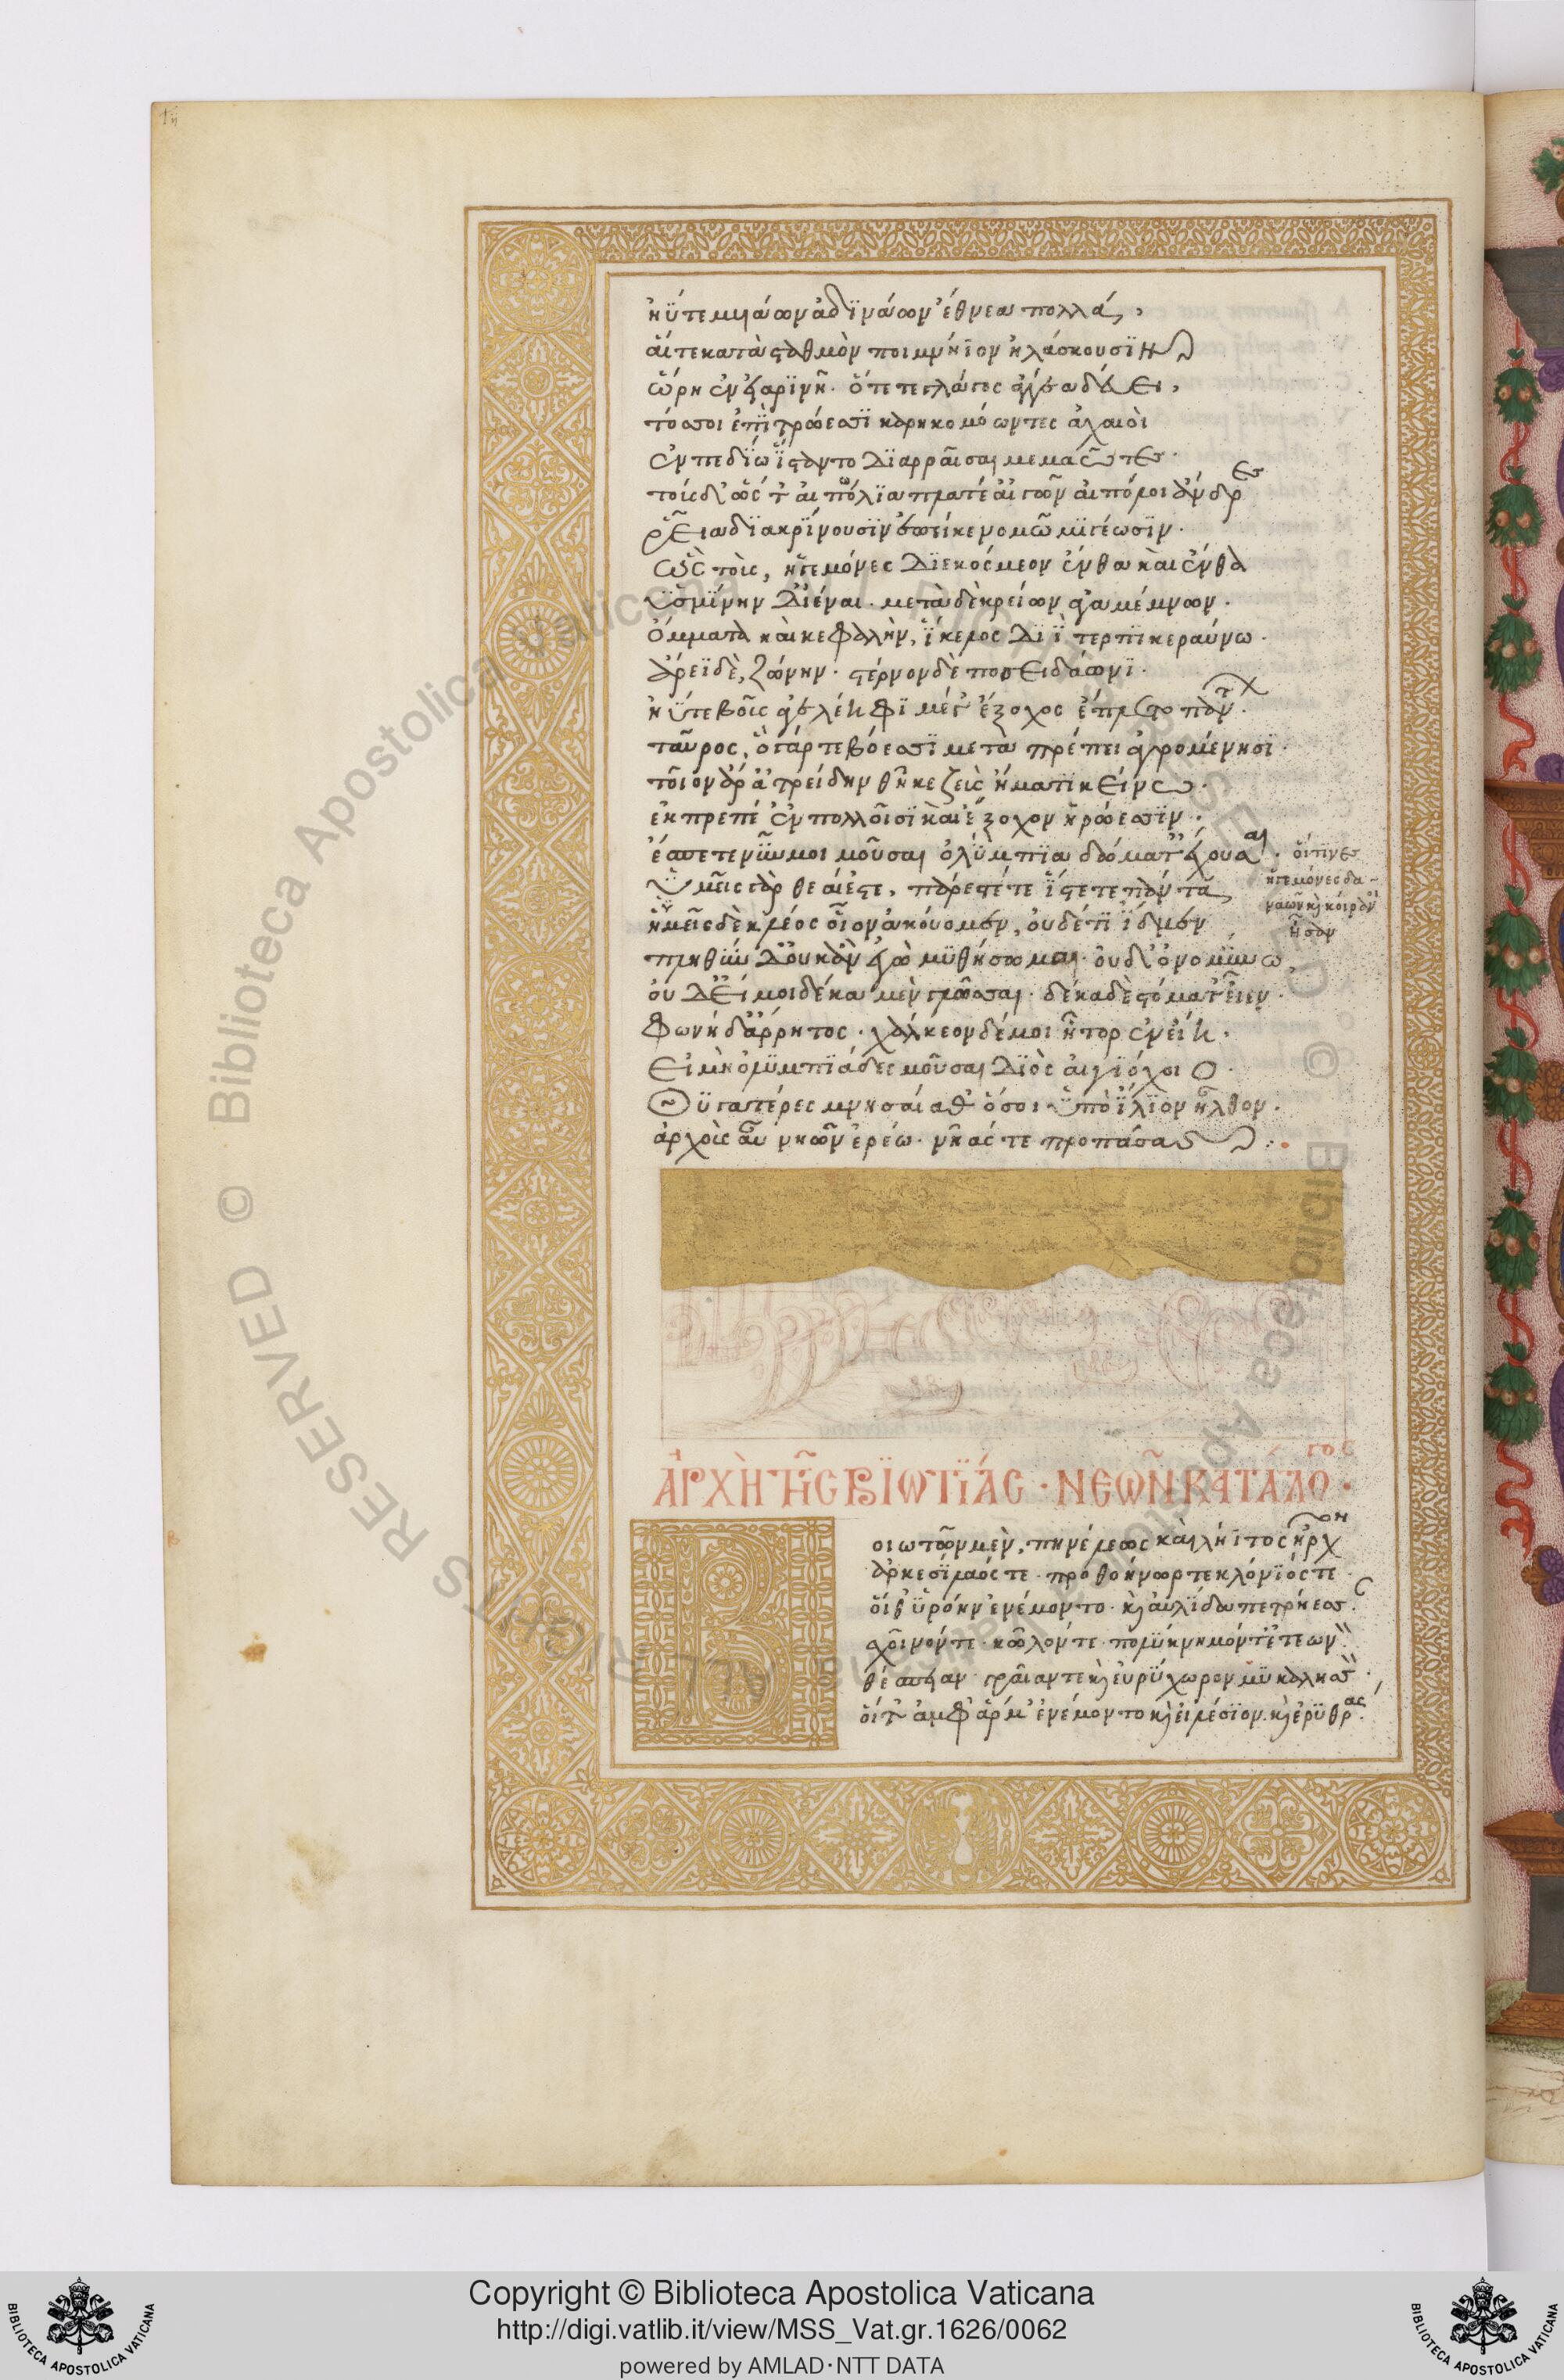 ἠΰτε μυιάων ἀδϊνάων ἔθνεα πολλά,
αἵτε κατὰ σταθμὸν ποιμνήϊον ἠλάσκουσϊν
ὥρη ἐν εἰαρϊνῆ· ὅτε τε γλάγος ἄγγεα δεύει,
τόσσοι ἐπὶ τρώεσσϊ καρηκομόωντες ἀχαιοὶ
ἐν πεδΐω ἵσταντο δϊαρραῖσαι μεμαῶτες·
τοὺς δ' ὥς τ' αἰπόλϊα πλατέ αἰγῶν αἰπόλοι ἄνδρες
ῥεῖα δϊακρΐνουσϊν ἐπεί κε νομῶ μϊγέωσϊν·
ὣς τοὺς, ἡγεμόνες δϊεκόσμεον ἔνθα καὶ ἔνθα
ὑσμΐνην δ' ἰέναι· μετὰ δὲ κρείων ἀγαμέμνων·
ὄμματα καὶ κεφαλὴν, ἴκελος δϊῒ τερπϊκεραύνω·
ἄρεϊ δὲ, ζώνην· στέρνον δὲ ποσειδάωνϊ·
ἠΰτε βοῦς ἀγέληφϊ μέγ' ἔξοχος ἔπλετο πάντων·
ταῦρος, ὁ γάρ τε βόεσσϊ μεταπρέπει ἀγρομένησϊ·
τοῖον ἄρ' ἀτρείδην θῆκε ζεὺς ἤματι κείνω·
ἐκπρεπέ' ἐν πολλοῖσϊ καὶ ἔξοχον ἡρώεσσϊν·
ἔσπετε νῦν μοι μοῦσαι ὀλύμπϊα δώματ' ἔχουσαι· οἵτινες
ὑμεῖς γὰρ θεαί ἐστε, πάρεστέ τε ἴστέ τε πάντα, ἡγεμόνες δα-
ναῶν καὶ κοίρανοι
ἡμεῖς δὲ κλέος οἷον ἀκούομεν, οὐδέ τϊ ἴδμεν ἦσαν
πληθὺν δ' οὐκ ἂν ἐγὼ μυθήσομαι· οὐδ' ὀνομήνω,
οὐδ' εἴ μοι δέκα μὲν γλῶσσαι· δέκα δὲ στόματ' εἶεν·
φωνὴ δ' ἄρρητος· χάλκεον δέ μοι ἦτορ ἐνείη,
εἰ μὴ ὀλυμπϊάδες μοῦσαι δϊὸς αἰγϊόχοιο·
θυγατέρες μνησαίαθ' ὅσοι ὑπὸ ἴλϊον ἦλθον·
ἀρχοὺς αὖ νηῶν ἐρέω· νῆάς τε προπάσας:·
ἈΡΧῊ ΤΗ͂Σ ΒΪΩΤΪΆΣ · ΝΕΩ͂Ν ΚΑΤΆΛΟΓΟΣ ·
Βοιωτῶν μὲν, πηνέλεως καὶ λήϊτος ἦρχον
ἀρκεσΐλαός τε· προθοήνωρ τε κλόνϊός τε·
οἵ θ' ὑρΐην ἐνέμοντο· καὶ αὐλΐδα πετρήεσσ·
σχοῖνόν τε· κῶλόν τε· πολύκνημόν τ' ἐτεωνὸν·
θέσπειαν· γραῖαν τε καὶ εὐρύχωρον μυκαλησσὸν·
οἵ τ' ἀμφ' ἅρμ' ἐνέμοντο καὶ εἰλέσϊον καὶ ἐρυθράς·
Copyright © Biblioteca Apostolica Vaticana
http://digi.vatlib.it/view/MSS_Vat.gr.1626/0062
powered by AMLAD·NTT DATA
BIBLIOTECA APOSTOLICA VATICANA
BIBLIOTECA APOSTOLICA VATICANA